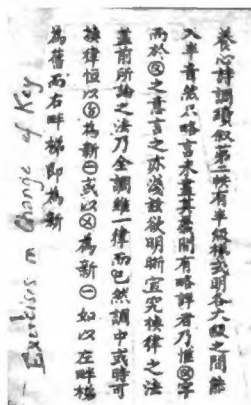 養心調叙第二條有半級模式明各大級之間能
入半音然只略言未盡其義間有略詳者乃惟字
而於之書言之亦淺茲欲明晰宜究換律之法
蓋前所論之法乃全調一律而已然調中或時可
換律恒以為新㊀或以為新㊀如以左畔梯
為舊而右畔梯即為新
Exercises on Change of Key